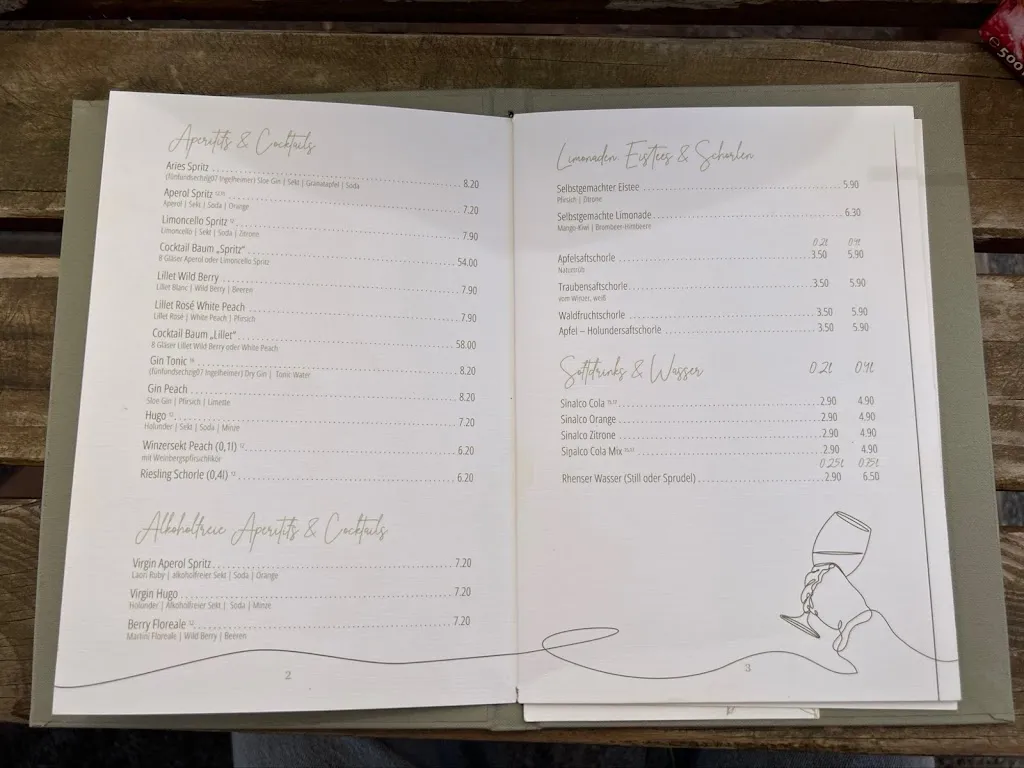 Aperitifs & Cocktails
Aries Spritz 8.20
(fünfundsechzig07 Ingelheimer) Sloe Gin | Sekt | Granatapfel | Soda
Aperol Spritz 7.20
Aperol | Sekt | Soda | Orange
Limoncello Spritz 7.90
Limoncello | Sekt | Soda | Zitrone
Cocktail Baum „Spritz“ 54.00
8 Gläser Aperol oder Limoncello Spritz
Lillet Wild Berry 7.90
Lillet Blanc | Wild Berry | Beeren
Lillet Rosé White Peach 7.90
Lillet Rosé | White Peach | Pfirsich
Cocktail Baum „Lillet“ 58.00
8 Gläser Lillet Wild Berry oder White Peach
Gin Tonic 8.20
(fünfundsechzig07 Ingelheimer) Dry Gin | Tonic Water
Gin Peach 8.20
Sloe Gin | Pfirsich | Limette
Hugo 7.20
Holunder | Sekt | Soda | Minze
Winzersekt Peach (0,1l) 6.20
mit Weinbergspfirsichlikör
Riesling Schorle (0,4l) 6.20
Alkoholfreie Aperitifs & Cocktails
Virgin Aperol Spritz 7.20
Laori Ruby | alkoholfreier Sekt | Soda | Orange
Virgin Hugo 7.20
Holunder | Alkoholfreier Sekt | Soda | Minze
Berry Floreale 7.20
Martini Floreale | Wild Berry | Beeren
2
Limonaden, Eistees & Schorlen
Selbstgemachter Eistee 5.90
Pfirsich | Zitrone
Selbstgemachte Limonade 6.30
Mango-Kiwi | Brombeer-Himbeere
0.2l 0.4l
Apfelsaftschorle 3.50 5.90
Naturtrüb
Traubensaftschorle 3.50 5.90
vom Winzer, weiß
Waldfruchtschorle 3.50 5.90
Apfel – Holundersaftschorle 3.50 5.90
Softdrinks & Wasser 0.2l 0.4l
Sinalco Cola 2.90 4.90
Sinalco Orange 2.90 4.90
Sinalco Zitrone 2.90 4.90
Sinalco Cola Mix 2.90 4.90
0.25l 0.75l
Rhenser Wasser (Still oder Sprudel) 2.90 6.50
3
℮ 500